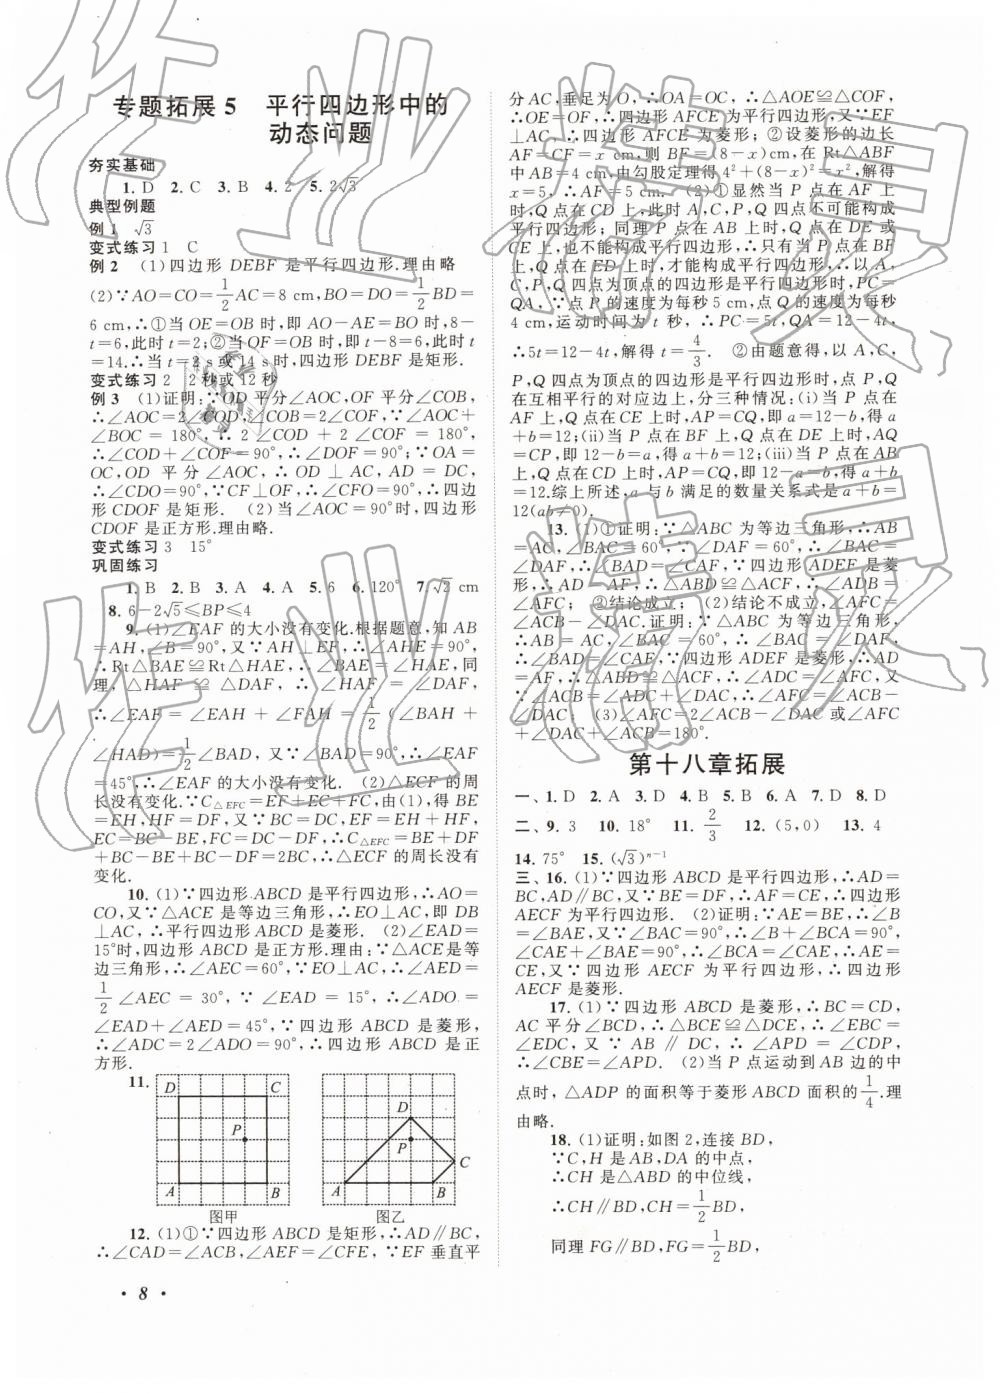 专题拓展5　平行四边形中的
动态问题
夯实基础
1. D　2. C　3. B　4. 2　5. 2√3
典型例题
例 1　√3
变式练习 1　C
例 2　(1)四边形 DEBF 是平行四边形.理由略
(2)∵AO=CO=1/2AC=8 cm,BO=DO=1/2BD=
6 cm,∴①当 OE=OB 时,即 AO-AE=BO 时,8-
t=6,此时 t=2;②当 OF=OB 时,即 t-8=6,此时 t
=14.∴当 t=2 s或 14 s时,四边形 DEBF 是矩形.
变式练习 2　2 秒或 12 秒
例 3　(1)证明:∵OD 平分∠AOC,OF 平分∠COB,
∴∠AOC=2∠COD,∠COB=2∠COF,∵∠AOC+
∠BOC = 180°,∴2∠COD + 2∠COF = 180°,
∴∠COD+∠COF=90°,∴∠DOF=90°;∵OA=
OC,OD 平分∠AOC,∴OD⊥AC,AD = DC,
∴∠CDO=90°,∵CF⊥OF,∴∠CFO=90°,∴四边
形 CDOF 是矩形.　(2)当∠AOC=90°时,四边形
CDOF 是正方形.理由略.
变式练习 3　15°
巩固练习
1. B　2. B　3. A　4. A　5. 6　6. 120°　7. √2 cm
8. 6-2√5≤BP≤4
9. (1)∠EAF 的大小没有变化.根据题意,知 AB
=AH,∠B=90°,又∵AH⊥EF,∴∠AHE=90°,
∴Rt△BAE≌Rt△HAE,∴∠BAE=∠HAE,同
理,△HAF≌△DAF,∴∠HAF=∠DAF,
∴∠EAF=∠EAH+∠FAH=1/2(∠BAH+
∠HAD)=1/2∠BAD,又∵∠BAD=90°,∴∠EAF
=45°,∴∠EAF 的大小没有变化.　(2)△ECF 的周
长没有变化.∵C△EFC=EF+EC+FC,由(1),得 BE
=EH,HF=DF,又∵BC=DC,EF=EH+HF,
EC=BC-BE,FC=DC-DF,∴C△EFC=BE+DF
+BC-BE+BC-DF=2BC,∴△ECF 的周长没有
变化.
10. (1)∵四边形 ABCD 是平行四边形,∴AO=
CO,又∵△ACE 是等边三角形,∴EO⊥AC,即 DB
⊥AC,∴平行四边形 ABCD 是菱形.　(2)∠EAD=
15°时,四边形 ABCD 是正方形.理由:∵△ACE是等
边三角形,∴∠AEC=60°,∵EO⊥AC,∴∠AED=
1/2∠AEC=30°,∵∠EAD=15°,∴∠ADO=
∠EAD+∠AED=45°,∵四边形 ABCD 是菱形,
∴∠ADC=2∠ADO=90°,∴四边形 ABCD 是正
方形.
11.
D　C　P　A　B
D　P　C　A　B
图甲　图乙
12. (1)①∵四边形 ABCD 是矩形,∴AD∥BC,
∴∠CAD=∠ACB,∠AEF=∠CFE,∵EF 垂直平
分 AC,垂足为 O,∴OA=OC,∴△AOE≌△COF,
∴OE=OF,∴四边形 AFCE 为平行四边形,又∵EF
⊥AC,∴四边形 AFCE 为菱形;②设菱形的边长
AF=CF=x cm,则 BF=(8-x)cm,在 Rt△ABF
中 AB=4 cm,由勾股定理得 4²+(8-x)²=x²,解得
x=5,∴AF=5 cm.　(2)①显然当 P 点在 AF
上时,Q 点在 CD 上,此时 A,C,P,Q 四点不可能构成
平行四边形;同理 P 点在 AB 上时,Q 点在 DE 或
CE 上,也不能构成平行四边形,∴只有当 P 点在 BF
上,Q 点在 ED 上时,才能构成平行四边形,∴以 A,
C,P,Q 四点为顶点的四边形是平行四边形时,PC=
QA.∵点 P 的速度为每秒 5 cm,点 Q 的速度为每秒
4 cm,运动时间为 t 秒,∴PC=5t,QA=12-4t,
∴5t=12-4t,解得 t=4/3.　②由题意得,以 A,C,
P,Q 四点为顶点的四边形是平行四边形时,点 P,Q
在互相平行的对应边上,分三种情况:(i)当 P 点在
AF 上,Q 点在 CE 上时,AP=CQ,即 a=12-b,得 a
+b=12;(ii)当 P 点在 BF 上,Q 点在 DE 上时,AQ
=CP,即 12-b=a,得 a+b=12;(iii)当 P 点在 AB
上,Q 点在 CD 上时,AP=CQ,即 12-a=b,得 a+b
=12.综上所述,a 与 b 满足的数量关系式是 a+b=
12(ab≠0).
13. (1)①证明:∵△ABC 为等边三角形,∴AB
=AC,∠BAC=60°,∵∠DAF=60°,∴∠BAC=
∠DAF,∴∠BAD=∠CAF,∵四边形 ADEF 是菱
形,∴AD=AF,∴△ABD≌△ACF,∴∠ADB=
∠AFC;　②结论成立;　(2)结论不成立,∠AFC=
∠ACB-∠DAC.证明:∵△ABC 为等边三角形,
∴AB=AC,∠BAC=60°,∴∠BAC=∠DAF,
∴∠BAD=∠CAF,∵四边形 ADEF 是菱形,∴AD
=AF,∴△ABD≌△ACF,∴∠ADC=∠AFC,又
∵∠ACB=∠ADC+∠DAC,∴∠AFC=∠ACB-
∠DAC;　(3)∠AFC=2∠ACB-∠DAC 或∠AFC
+∠DAC+∠ACB=180°.
第十八章拓展
一、1. D　2. A　3. D　4. B　5. B　6. A　7. D　8. D
二、9. 3　10. 18°　11. 2/3　12. (5,0)　13. 4
14. 75°　15. (√3)ⁿ⁻¹
三、16. (1)∵四边形 ABCD 是平行四边形,∴AD=
BC,AD∥BC,又∵BE=DF,∴AF=CE,∴四边形
AECF 为平行四边形.　(2)证明:∵AE=BE,∴∠B
=∠BAE,又∵∠BAC=90°,∴∠B+∠BCA=90°,
∠CAE+∠BAE=90°,∴∠BCA=∠CAE,∴AE=
CE,又∵四边形 AECF 为平行四边形,∴四边形
AECF 是菱形.
17. (1)∵四边形 ABCD 是菱形,∴BC=CD,
AC 平分∠BCD,∴△BCE≌△DCE,∴∠EBC=
∠EDC,又∵AB∥DC,∴∠APD=∠CDP,
∴∠CBE=∠APD.　(2)当 P 点运动到 AB 边的中
点时,△ADP 的面积等于菱形 ABCD 面积的1/4.理
由略.
18. (1)证明:如图 2,连接 BD,
∵C,H 是 AB,DA 的中点,
∴CH 是△ABD 的中位线,
∴CH∥BD,CH=1/2BD,
同理 FG∥BD,FG=1/2BD,
· 8 ·
作业精灵
作业精灵